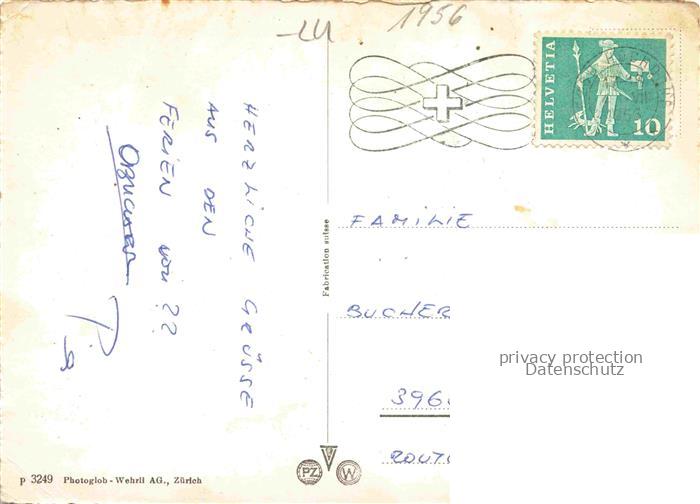 LU 1956
HELVETIA
10
HERZLICHE GRÜSSE
AUS DEN
FERIEN VON ??
FAMILIE
BUCHER
396
ROUT
privacy protection
Datenschutz
Fabrication suisse
PZ W
p 3249 Photoglob-Wehrli AG., Zürich